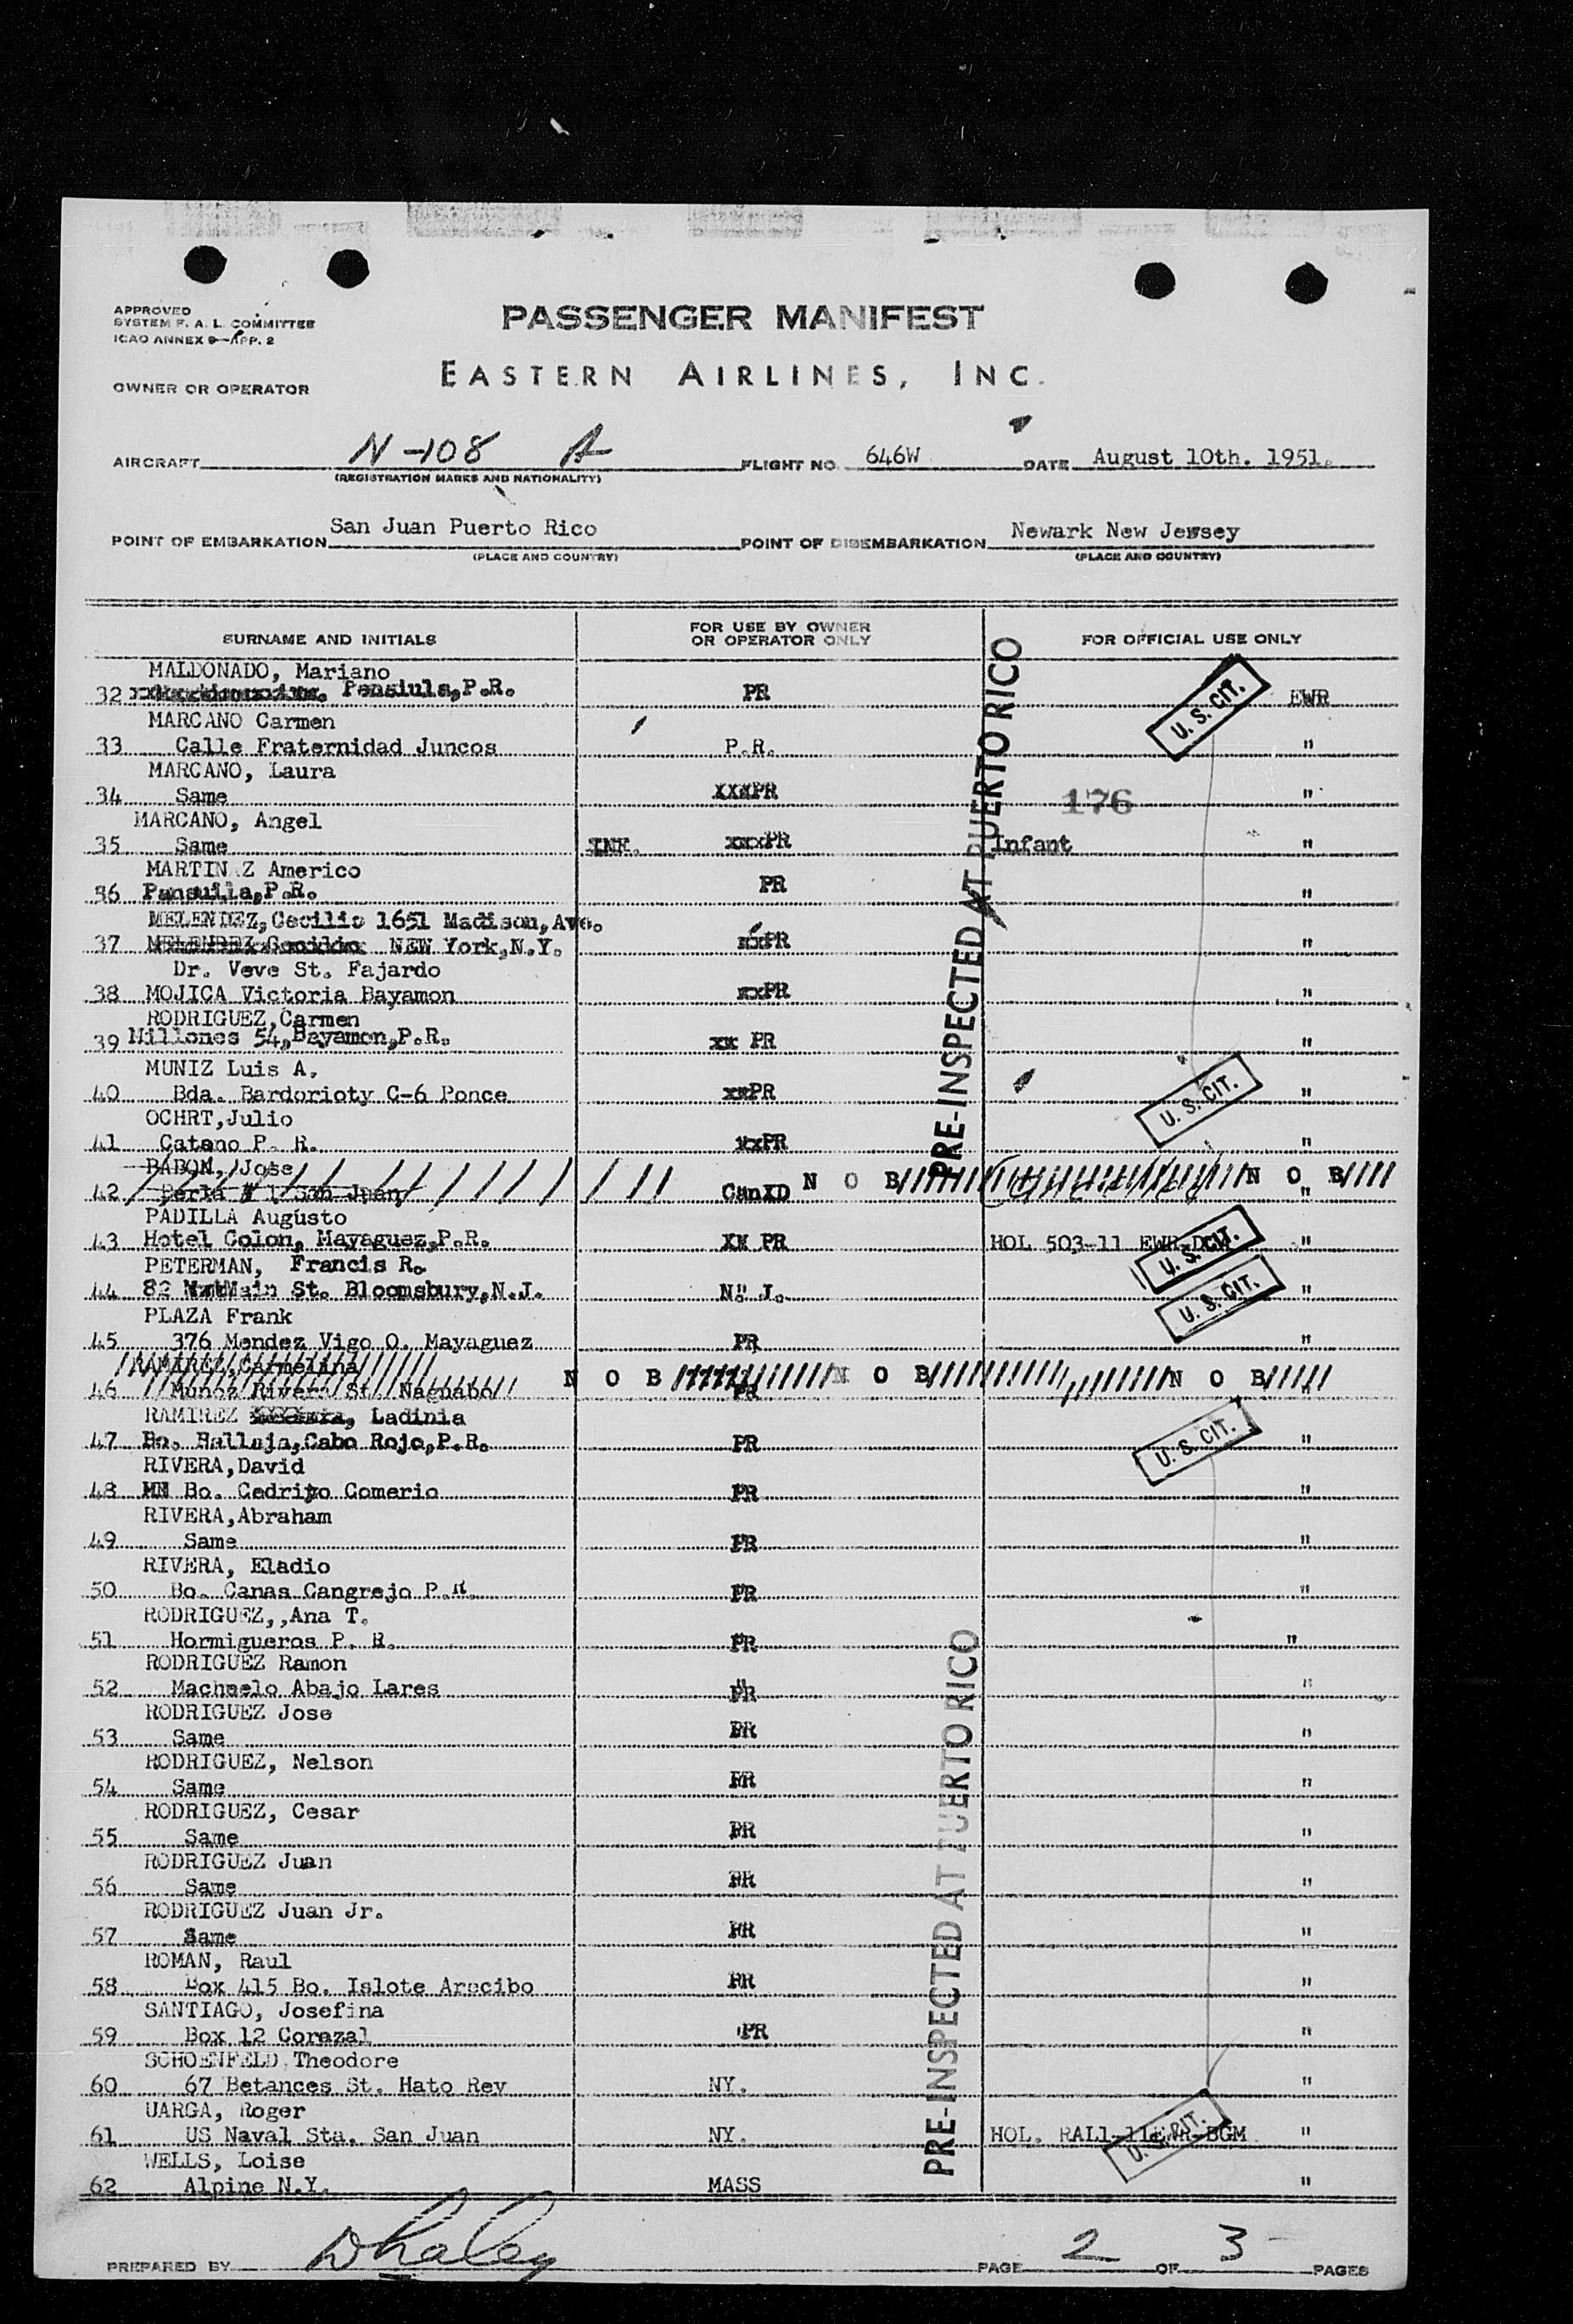 APPROVED
SYSTEM F. A. L. COMMITTEE
ICAO ANNEX 9—APP. 2
PASSENGER MANIFEST
EASTERN AIRLINES, INC.
OWNER OR OPERATOR
AIRCRAFT N-108 A FLIGHT NO. 646W DATE August 10th. 1951.
(REGISTRATION MARKS AND NATIONALITY)
POINT OF EMBARKATION San Juan Puerto Rico POINT OF DISEMBARKATION Newark New Jersey
(PLACE AND COUNTRY) (PLACE AND COUNTRY)
SURNAME AND INITIALS FOR USE BY OWNER OR OPERATOR ONLY FOR OFFICIAL USE ONLY
PRE-INSPECTED AT PUERTO RICO
MALDONADO, Mariano
32 Pensiula,P.R. PR U. S. CIT. EWR
MARCANO Carmen
33 Calle Fraternidad Juncos P.R. "
MARCANO, Laura
34 Same xxxPR 176 "
MARCANO, Angel
35 Same INF. xxxPR Infant "
MARTIN Z Americo
36 Pensuila,P.R. PR "
MELENDEZ,Cecilio 1651 Madison,Ave.
37 MELENDEZ Cecilio NEW York,N.Y. xxPR "
Dr. Veve St. Fajardo
38 MOJICA Victoria Bayamon xxPR "
RODRIGUEZ,Carmen
39 Millones 54,Bayamon,P.R. xx PR "
MUNIZ Luis A.
40 Bda. Bardorioty C-6 Ponce xxPR U. S. CIT. "
OCHRT,Julio
41 Catano P. R. xxPR "
BABON, Jose
42 Perla # 1 San Juan CanXD N O B N O B "
PADILLA Augusto
43 Hotel Colon, Mayaguez,P.R. XX PR HOL 503-11 EWR U. S. CIT. "
PETERMAN, Francis R.
44 82 Main St. Bloomsbury,N.J. N. J. U. S. CIT. "
PLAZA Frank
45 376 Mendez Vigo O. Mayaguez PR "
RAMIREZ,Carmelina
46 Munoz Rivera St. Naguabo N O B PR N O B N O B "
RAMIREZ , Ladinia
47 Bo. Ballaja,Cabo Rojo,P.R. PR U. S. CIT. "
RIVERA,David
48 MN Bo. Cedrito Comerio PR "
RIVERA,Abraham
49 Same PR "
RIVERA, Eladio
50 Bo. Canas Cangrejo P.R. PR "
RODRIGUEZ,,Ana T.
51 Hormigueros P. R. PR "
RODRIGUEZ Ramon
52 Machuelo Abajo Lares PR "
RODRIGUEZ Jose
53 Same PR "
RODRIGUEZ, Nelson
54 Same PR "
RODRIGUEZ, Cesar
55 Same PR "
RODRIGUEZ Juan
56 Same PR "
RODRIGUEZ Juan Jr.
57 Same PR "
ROMAN, Raul
58 Box 415 Bo. Islote Arecibo PR "
SANTIAGO, Josefina
59 Box 12 Corazal PR "
SCHOENFELD Theodore
60 67 Betances St. Hato Rey NY. "
UARGA, Roger
61 US Naval Sta. San Juan NY. HOL. RAL1-11EWR-BGM U. S. CIT. "
WELLS, Loise
62 Alpine N.Y. MASS "
PRE-INSPECTED AT PUERTO RICO
PREPARED BY Whaley PAGE 2 OF 3 PAGES